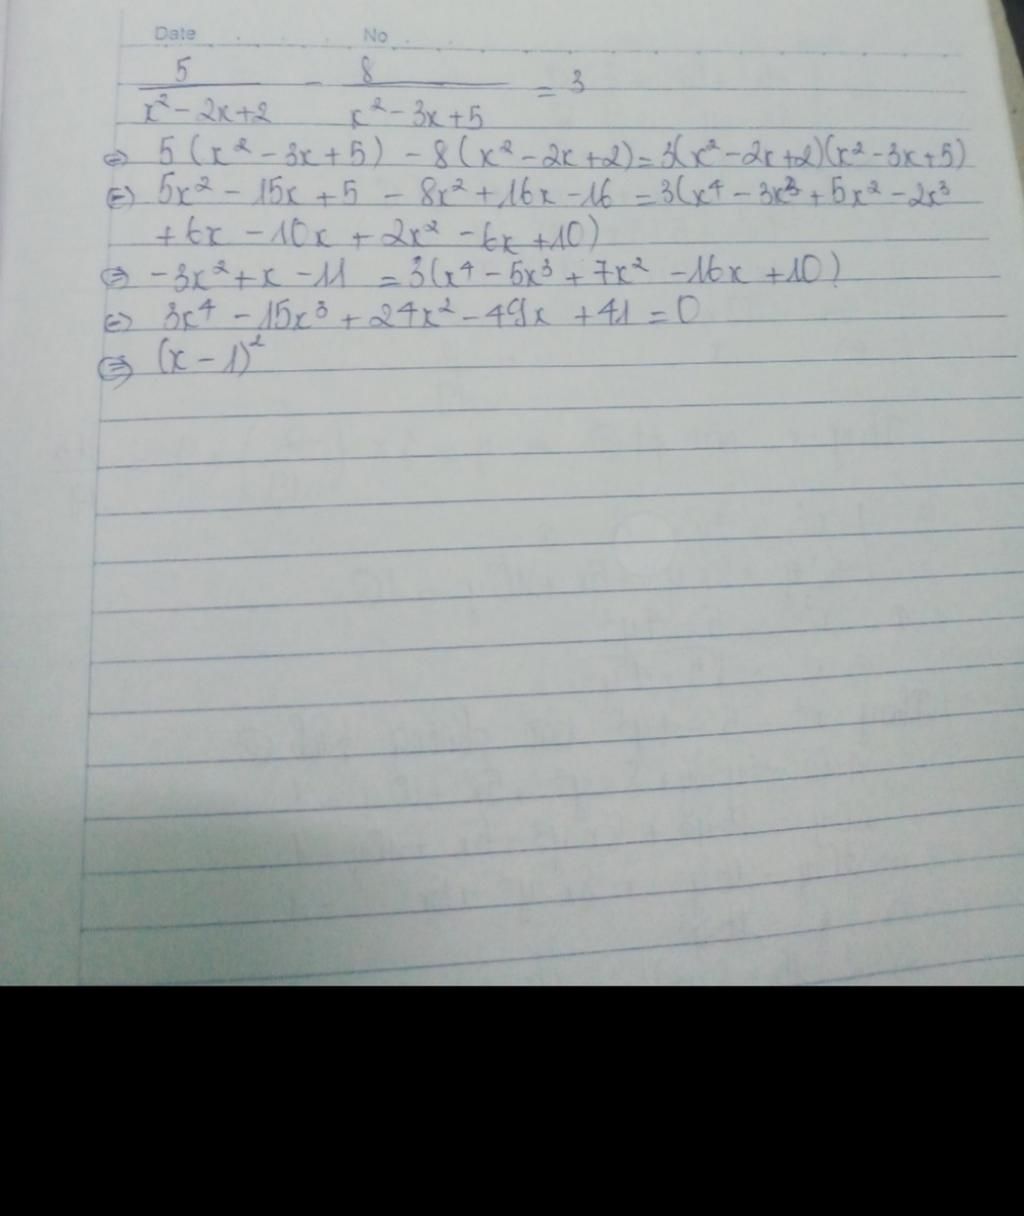 Date No
5/(x² - 2x + 2) - 8/(x² - 3x + 5) = 3
⇔ 5(x² - 3x + 5) - 8(x² - 2x + 2) = 3(x² - 2x + 2)(x² - 3x + 5)
⇔ 5x² - 15x + 5 - 8x² + 16x - 16 = 3(x⁴ - 3x³ + 5x² - 2x³
+ 6x - 10x + 2x² - 6x + 10)
⇔ -3x² + x - 11 = 3(x⁴ - 5x³ + 7x² - 16x + 10)
⇔ 3x⁴ - 15x³ + 24x² - 49x + 41 = 0
⇔ (x - 1)²